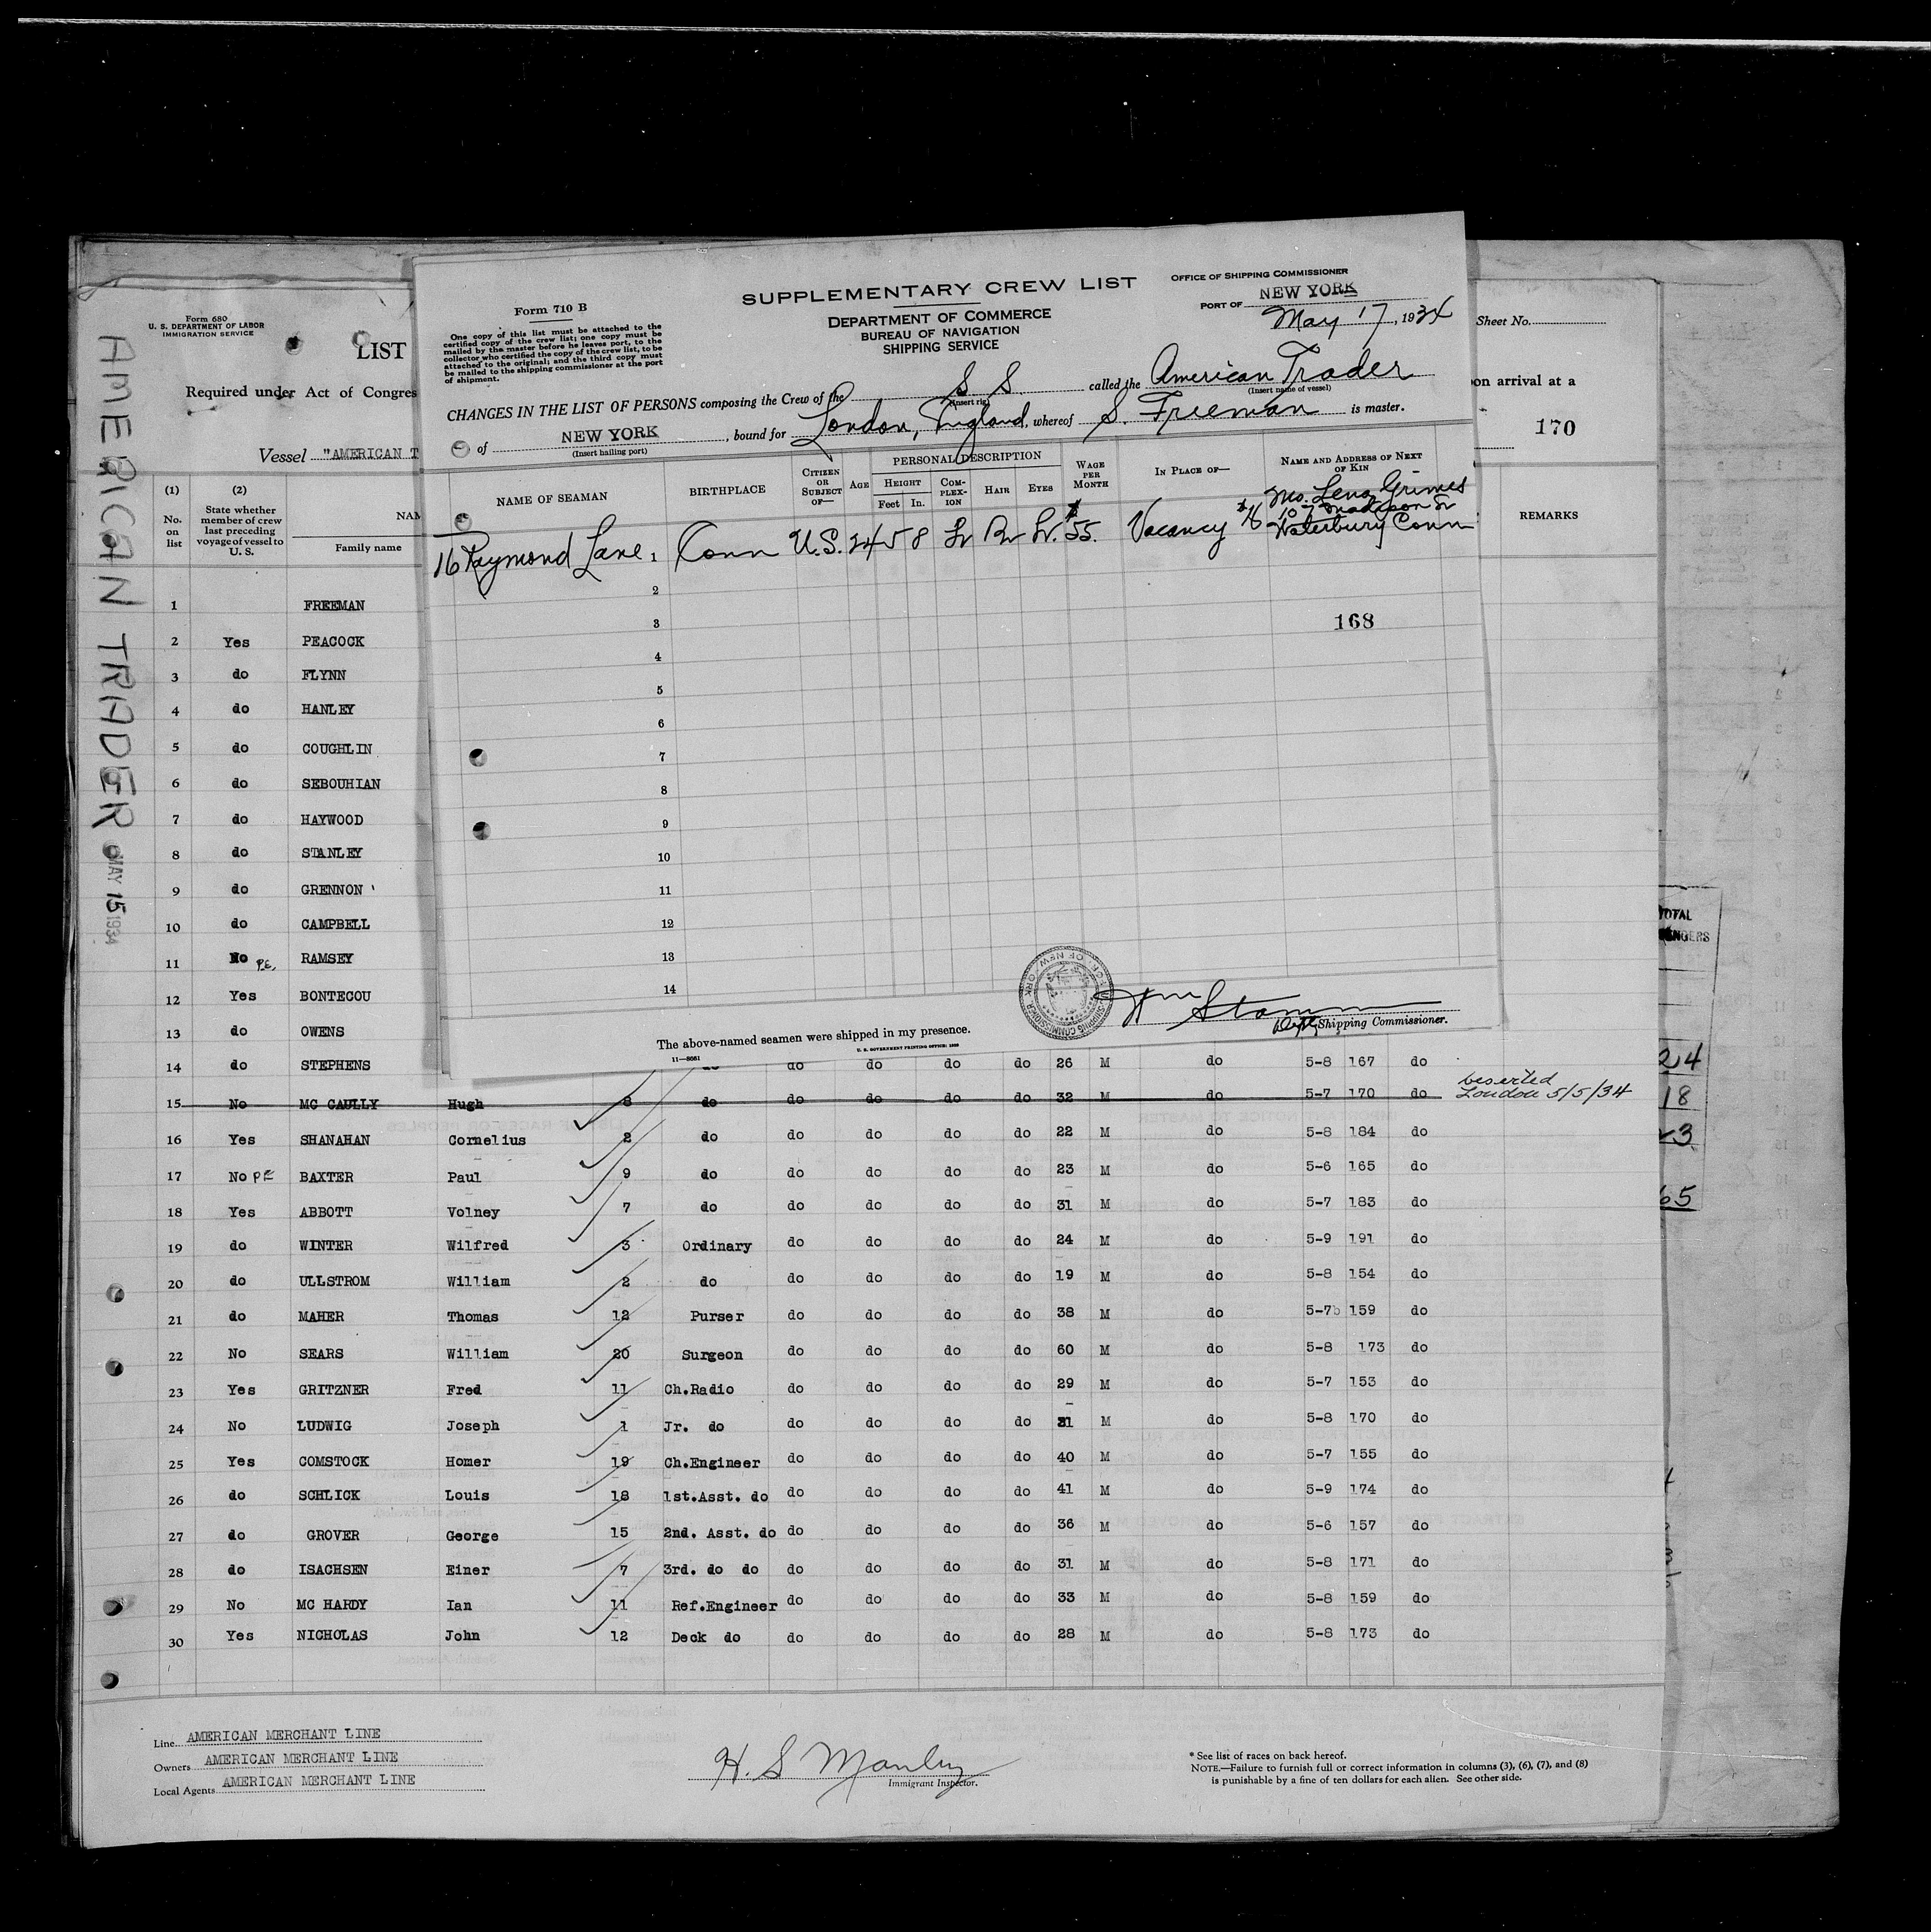 SUPPLEMENTARY CREW LIST
OFFICE OF SHIPPING COMMISSIONER
Form 710 B
PORT OF NEW YORK
May 17, 1934
DEPARTMENT OF COMMERCE
BUREAU OF NAVIGATION
SHIPPING SERVICE
One copy of this list must be attached to the
certified copy of the crew list; one copy must be
mailed by the master before he leaves port, to the
collector who certified the copy of the crew list, to be
attached to the original; and the third copy must
be mailed to the shipping commissioner at the port
of shipment.
CHANGES IN THE LIST OF PERSONS composing the Crew of the S S called the American Trader
(Insert rig) (Insert name of vessel)
of NEW YORK, bound for London, England, whereof S. Freeman is master.
(Insert hailing port)
NAME OF SEAMAN BIRTHPLACE CITIZEN OR SUBJECT OF— AGE PERSONAL DESCRIPTION HEIGHT Feet In. COMPLEXION HAIR EYES WAGE PER MONTH IN PLACE OF— NAME AND ADDRESS OF NEXT OF KIN
Lena Grimes
Waterbury Conn
16 Raymond Lane 1 Conn U.S. 24 5 8 Lr Br Lr. $55. Vacancy
2
3
168
4
5
6
7
8
9
10
11
12
13
14
The above-named seamen were shipped in my presence.
Shipping Commissioner.
11—8681
U. S. GOVERNMENT PRINTING OFFICE
AMERICAN TRADER
MAY 15 1934
Form 680
U. S. DEPARTMENT OF LABOR
IMMIGRATION SERVICE
LIST
Sheet No.
Required under Act of Congres
on arrival at a
170
Vessel "AMERICAN T
(1) (2)
No. on list
State whether member of crew last preceding voyage of vessel to U. S.
NAM
Family name
REMARKS
1 FREEMAN
2 Yes PEACOCK
3 do FLYNN
4 do HANLEY
5 do COUGHLIN
6 do SEBOUHIAN
7 do HAYWOOD
8 do STANLEY
9 do GRENNON
10 do CAMPBELL
11 No P.E. RAMSEY
12 Yes BONTECOU
13 do OWENS
14 do STEPHENS do do do do do 26 M do 5-8 167 do
15 No MC CAULLY Hugh 8 do do do do do 32 M do 5-7 170 do Deserted London 5/5/34
16 Yes SHANAHAN Cornelius 2 do do do do do 22 M do 5-8 184 do
17 No PE BAXTER Paul 9 do do do do do 23 M do 5-6 165 do
18 Yes ABBOTT Volney 7 do do do do do 31 M do 5-7 183 do
19 do WINTER Wilfred 3 Ordinary do do do do 24 M do 5-9 191 do
20 do ULLSTROM William 2 do do do do do 19 M do 5-8 154 do
21 do MAHER Thomas 12 Purser do do do do 38 M do 5-7 159 do
22 No SEARS William 20 Surgeon do do do do 60 M do 5-8 173 do
23 Yes GRITZNER Fred 11 Ch.Radio do do do do 29 M do 5-7 153 do
24 No LUDWIG Joseph 1 Jr. do do do do do 21 M do 5-8 170 do
25 Yes COMSTOCK Homer 19 Ch.Engineer do do do do 40 M do 5-7 155 do
26 do SCHLICK Louis 18 1st.Asst. do do do do do 41 M do 5-9 174 do
27 do GROVER George 15 2nd. Asst. do do do do do 36 M do 5-6 157 do
28 do ISACHSEN Einer 7 3rd. do do do do do do 31 M do 5-8 171 do
29 No MC HARDY Ian 11 Ref.Engineer do do do do 33 M do 5-8 159 do
30 Yes NICHOLAS John 12 Deck do do do do do 28 M do 5-8 173 do
TOTAL
24
18
23
65
Line AMERICAN MERCHANT LINE
Owners AMERICAN MERCHANT LINE
Local Agents AMERICAN MERCHANT LINE
H. S Manley
Immigrant Inspector.
* See list of races on back hereof.
NOTE.—Failure to furnish full or correct information in columns (3), (6), (7), and (8)
is punishable by a fine of ten dollars for each alien. See other side.